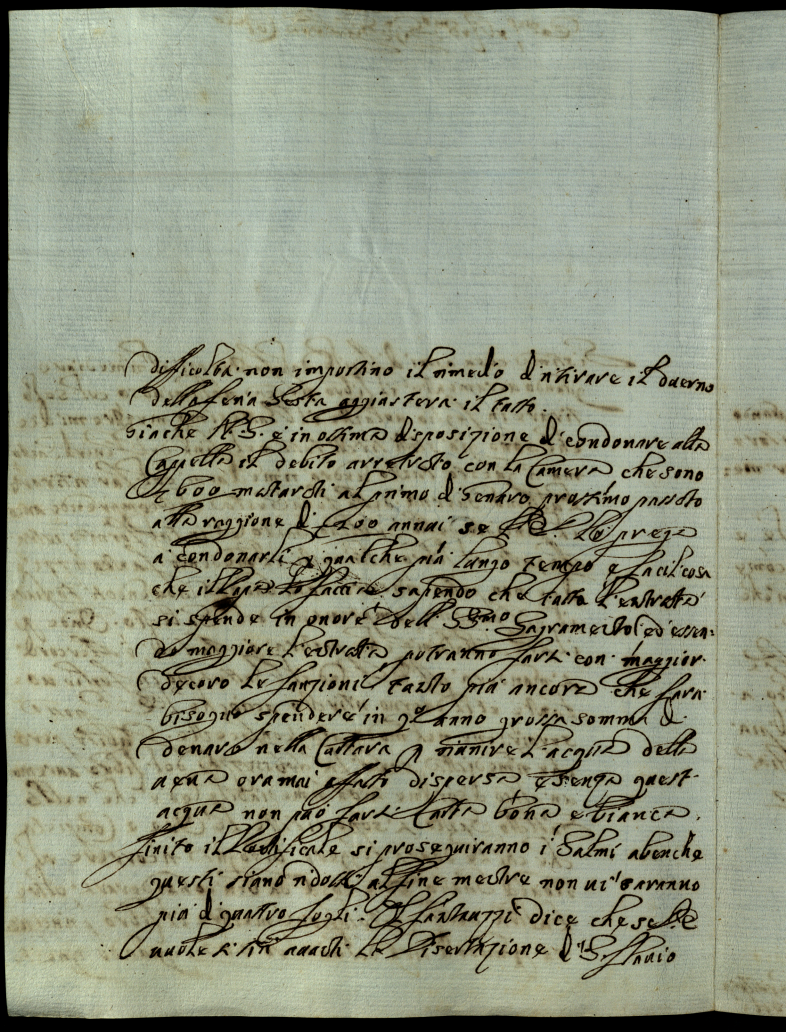 difficultà non importino il rimedio di ritirare il duerno
della feria sesta aggiusterà il tutto.
Giache N. S. è in ottima disposizione di condonare alla
Cappella il debito arretrato con la Camera che sono
600 maturati al primo di Genaro prossimo passato
alla raggione di 200 annui se lo prega
a condonarli p qualche più lungo tempo è facil cosa
che il Papa lo faccia sapendo che tutta l'entrata
si spende in onore dell SS.mo Sagramento ed essen:
do maggiore l'entrata potranno farsi con maggior
decoro le funzioni tanto più ancora che sarà
bisogno spendere in q.o anno grossa somma di
denaro nella Cartara p riunire l'acqua della
acqua oramai affatto dispersa e senza quest
acqua non può farsi Carta bona e bianca.
finito il Pontificale si proseguiranno i Salmi abenche
questi siano ridotti al fine mentre non ui saranno
più di quattro fogli. Il fantauzzi dice che se
uuole si tiri auanti la Disertazione di S. flauio